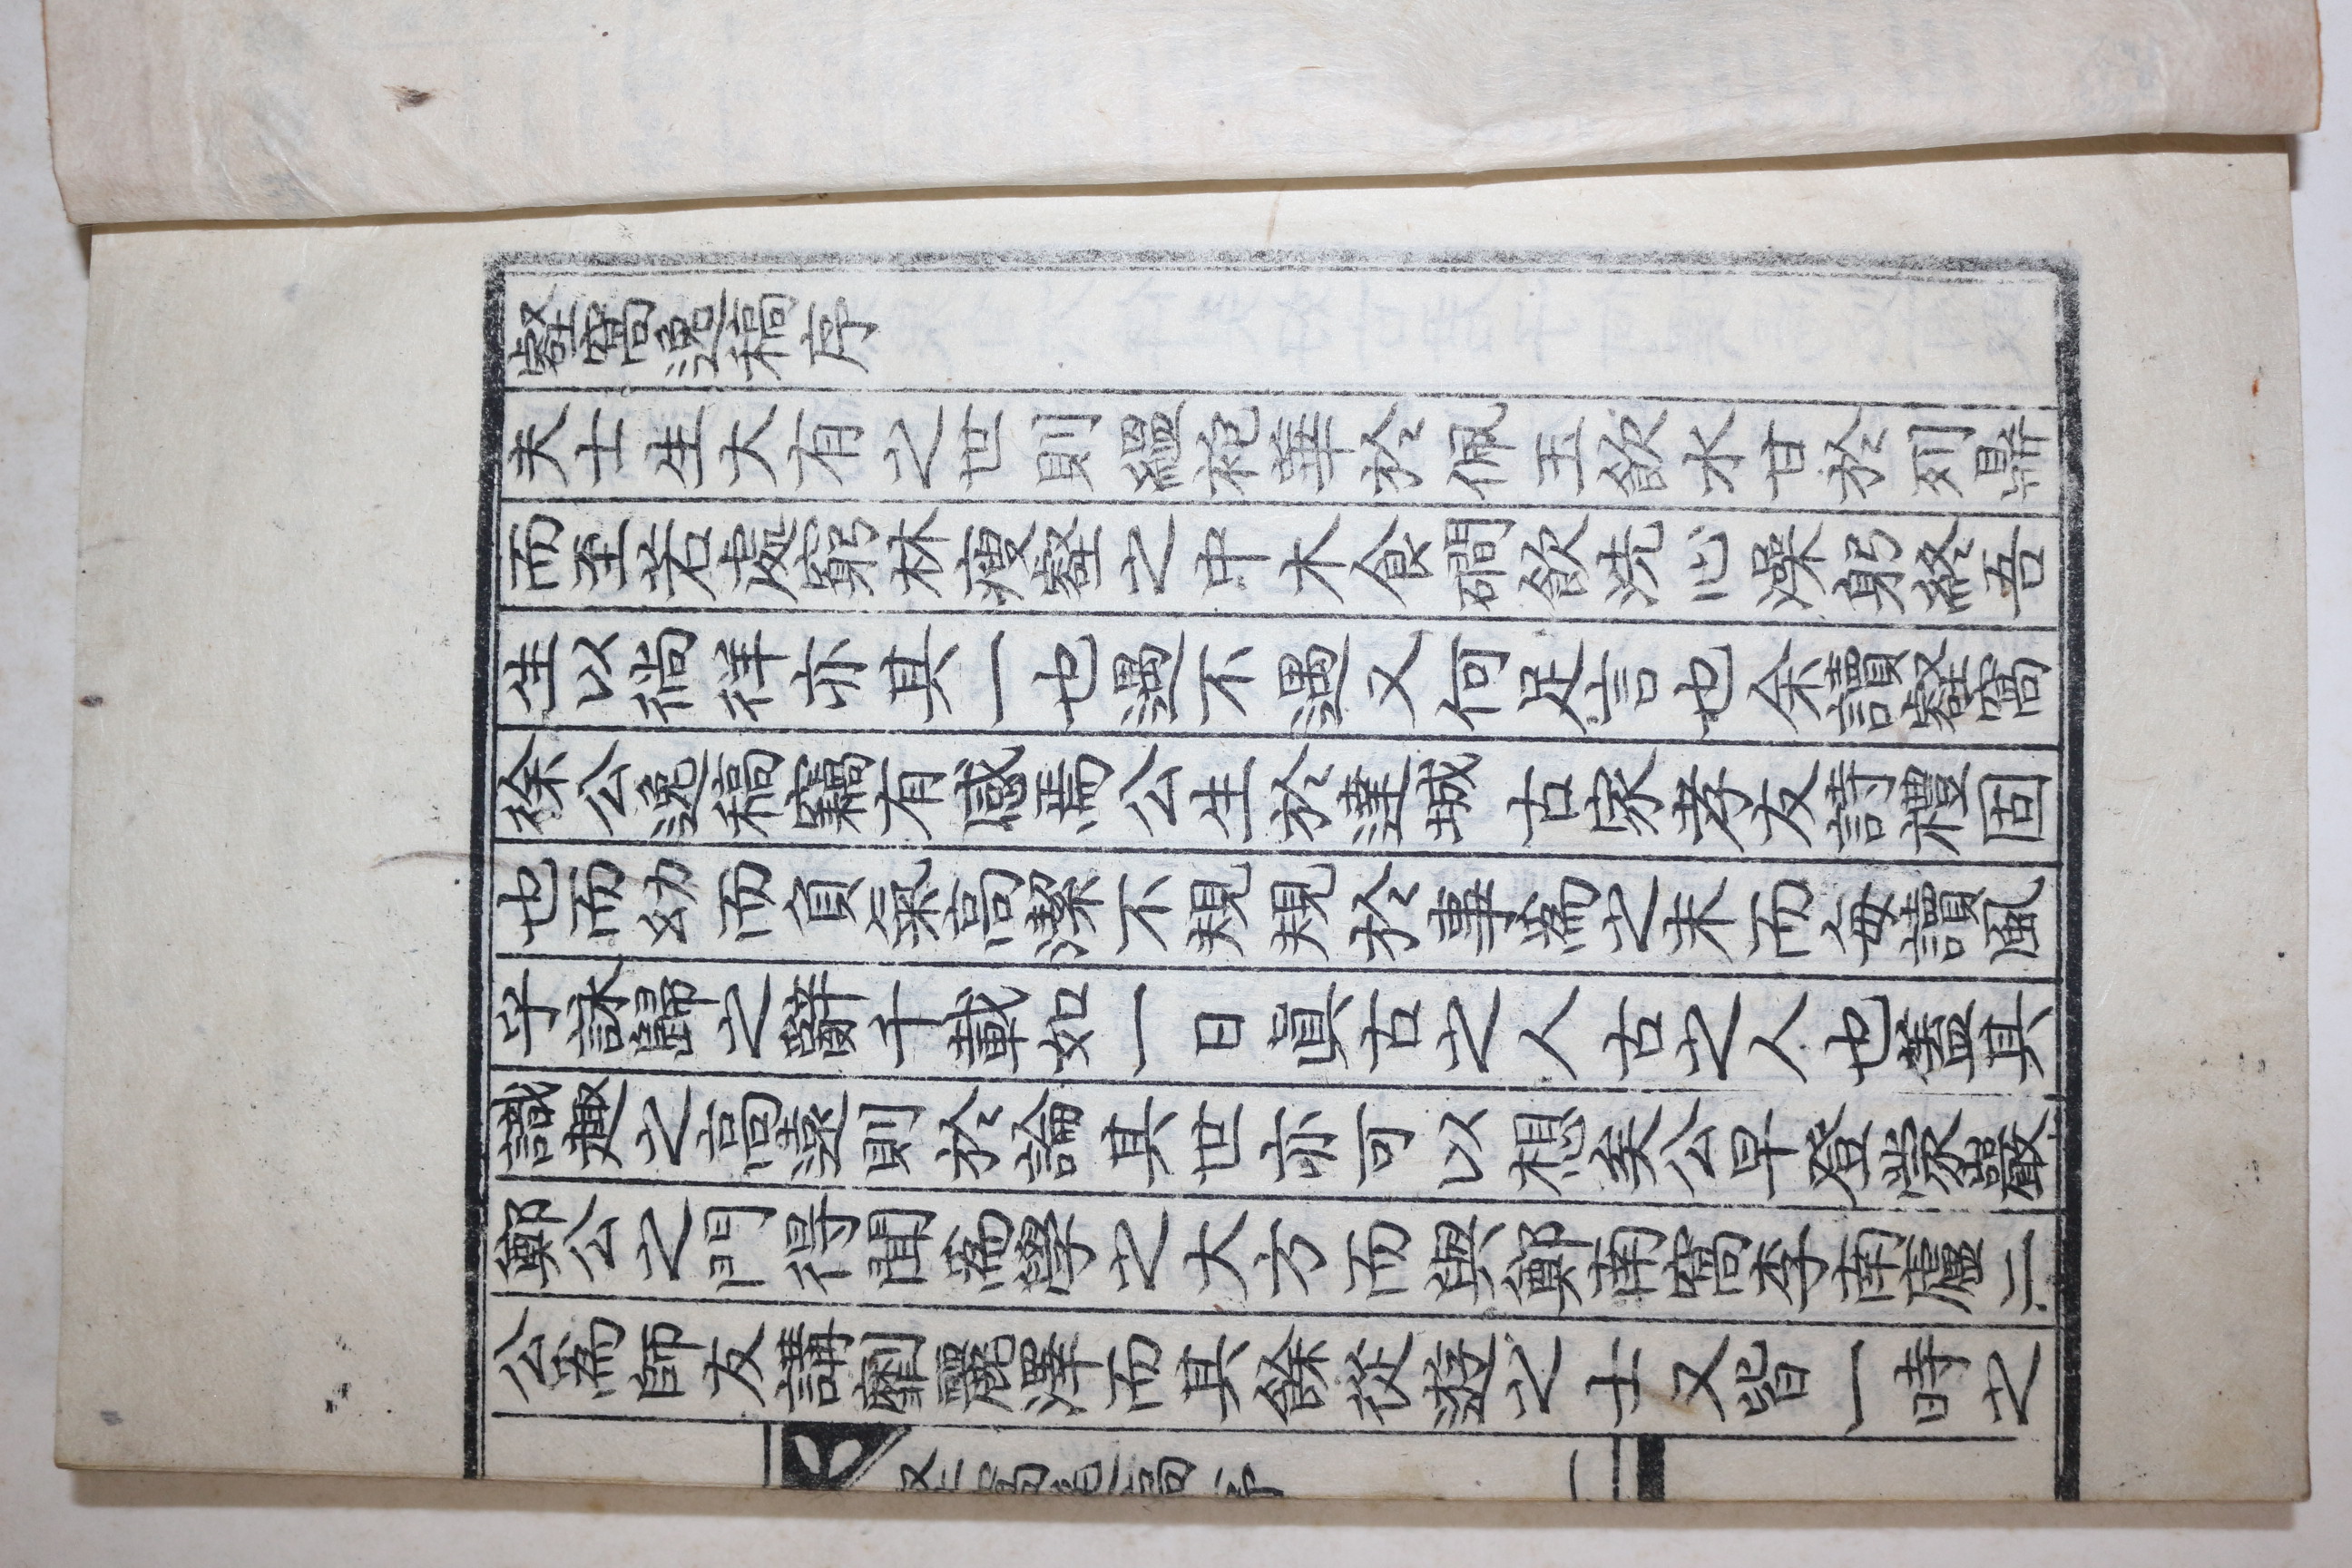 壑窩逸稿序
夫士生大有之世則縕袍華於佩玉飮水甘於列鼎
而至若處窮林瘦壑之中木食磵飮洗心澡躬終吾
生以徜徉亦其一也遇不遇又何足言也余讀壑窩
徐公逸稿竊有感焉公生於達城古家孝友詩禮固
也而幼而負氣高潔不規規於事爲之末而每讀風
乎詠歸之辭千載如一日眞古之人古之人也蓋其
識趣之高遠則於論其世亦可以想矣公早登蒙巖
鄭公之門得聞爲學之大方而與鄭南窩李南廬二
公爲師友講劘麗澤而其餘從遊之士又皆一時之
壑窩逸稿序
一